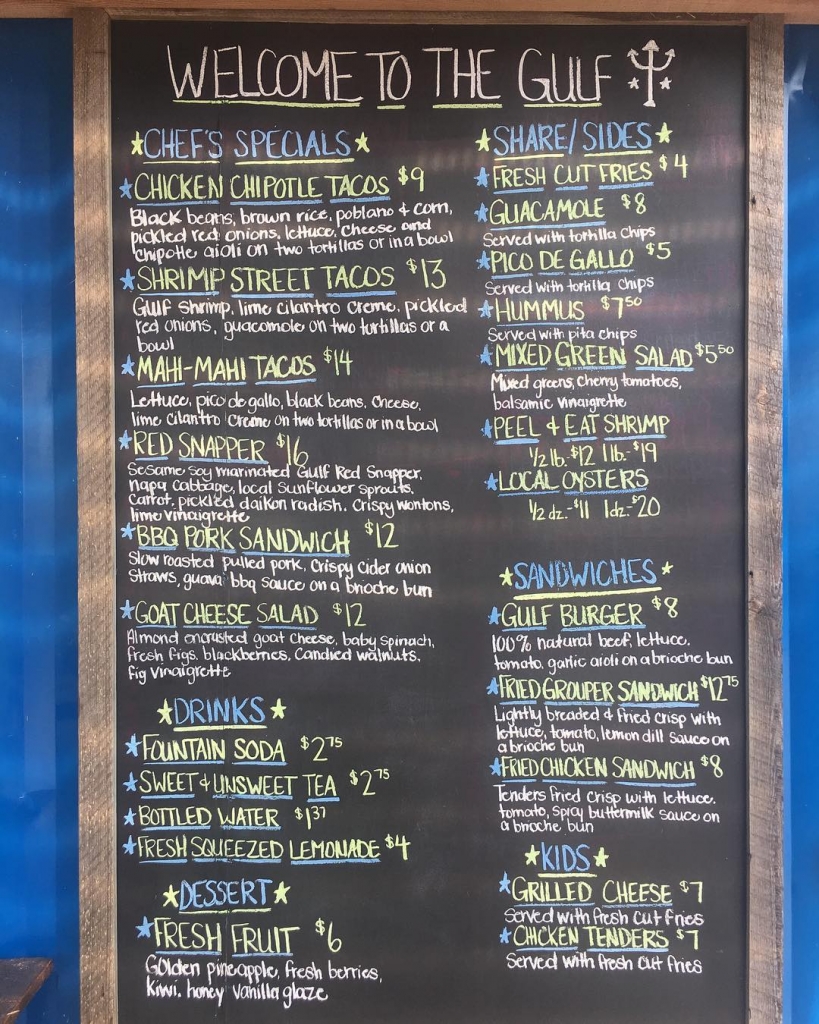 WELCOME TO THE GULF
CHEF'S SPECIALS
CHICKEN CHIPOTLE TACOS $9
Black beans, brown rice, poblano & corn,
pickled red onions, lettuce, cheese and
chipotle aioli on two tortillas or in a bowl
SHRIMP STREET TACOS $13
Gulf shrimp, lime cilantro creme, pickled
red onions, guacomole on two tortillas or a
bowl
MAHI-MAHI TACOS $14
Lettuce, pico de gallo, black beans, cheese,
lime cilantro creme on two tortillas or in a bowl
RED SNAPPER $16
Sesame soy marinated Gulf Red Snapper,
napa cabbage, local sunflower sprouts,
carrot, pickled daikon radish, crispy wontons,
lime vinaigrette
BBQ PORK SANDWICH $12
Slow roasted pulled pork, crispy cider onion
straws, guava bbq sauce on a brioche bun
GOAT CHEESE SALAD $12
Almond encrusted goat cheese, baby spinach,
fresh figs, blackberries, candied walnuts,
fig vinaigrette
DRINKS
FOUNTAIN SODA $2.75
SWEET & UNSWEET TEA $2.75
BOTTLED WATER $1.37
FRESH SQUEEZED LEMONADE $4
DESSERT
FRESH FRUIT $6
Golden pineapple, fresh berries,
kiwi, honey vanilla glaze
SHARE/SIDES
FRESH CUT FRIES $4
GUACAMOLE $8
Served with tortilla chips
PICO DE GALLO $5
Served with tortilla chips
HUMMUS $7.50
Served with pita chips
MIXED GREEN SALAD $5.50
Mixed greens, cherry tomatoes,
balsamic vinaigrette
PEEL & EAT SHRIMP
1/2 lb.-$12 1 lb.-$19
LOCAL OYSTERS
1/2 dz.-$11 1dz.-$20
SANDWICHES
GULF BURGER $8
100% natural beef, lettuce,
tomato, garlic aioli on a brioche bun
FRIED GROUPER SANDWICH $12.75
Lightly breaded & fried crisp with
lettuce, tomato, lemon dill sauce on
a brioche bun
FRIED CHICKEN SANDWICH $8
Tenders fried crisp with lettuce,
tomato, spicy buttermilk sauce on
a brioche bun
KIDS
GRILLED CHEESE $7
Served with fresh cut fries
CHICKEN TENDERS $7
Served with fresh cut fries